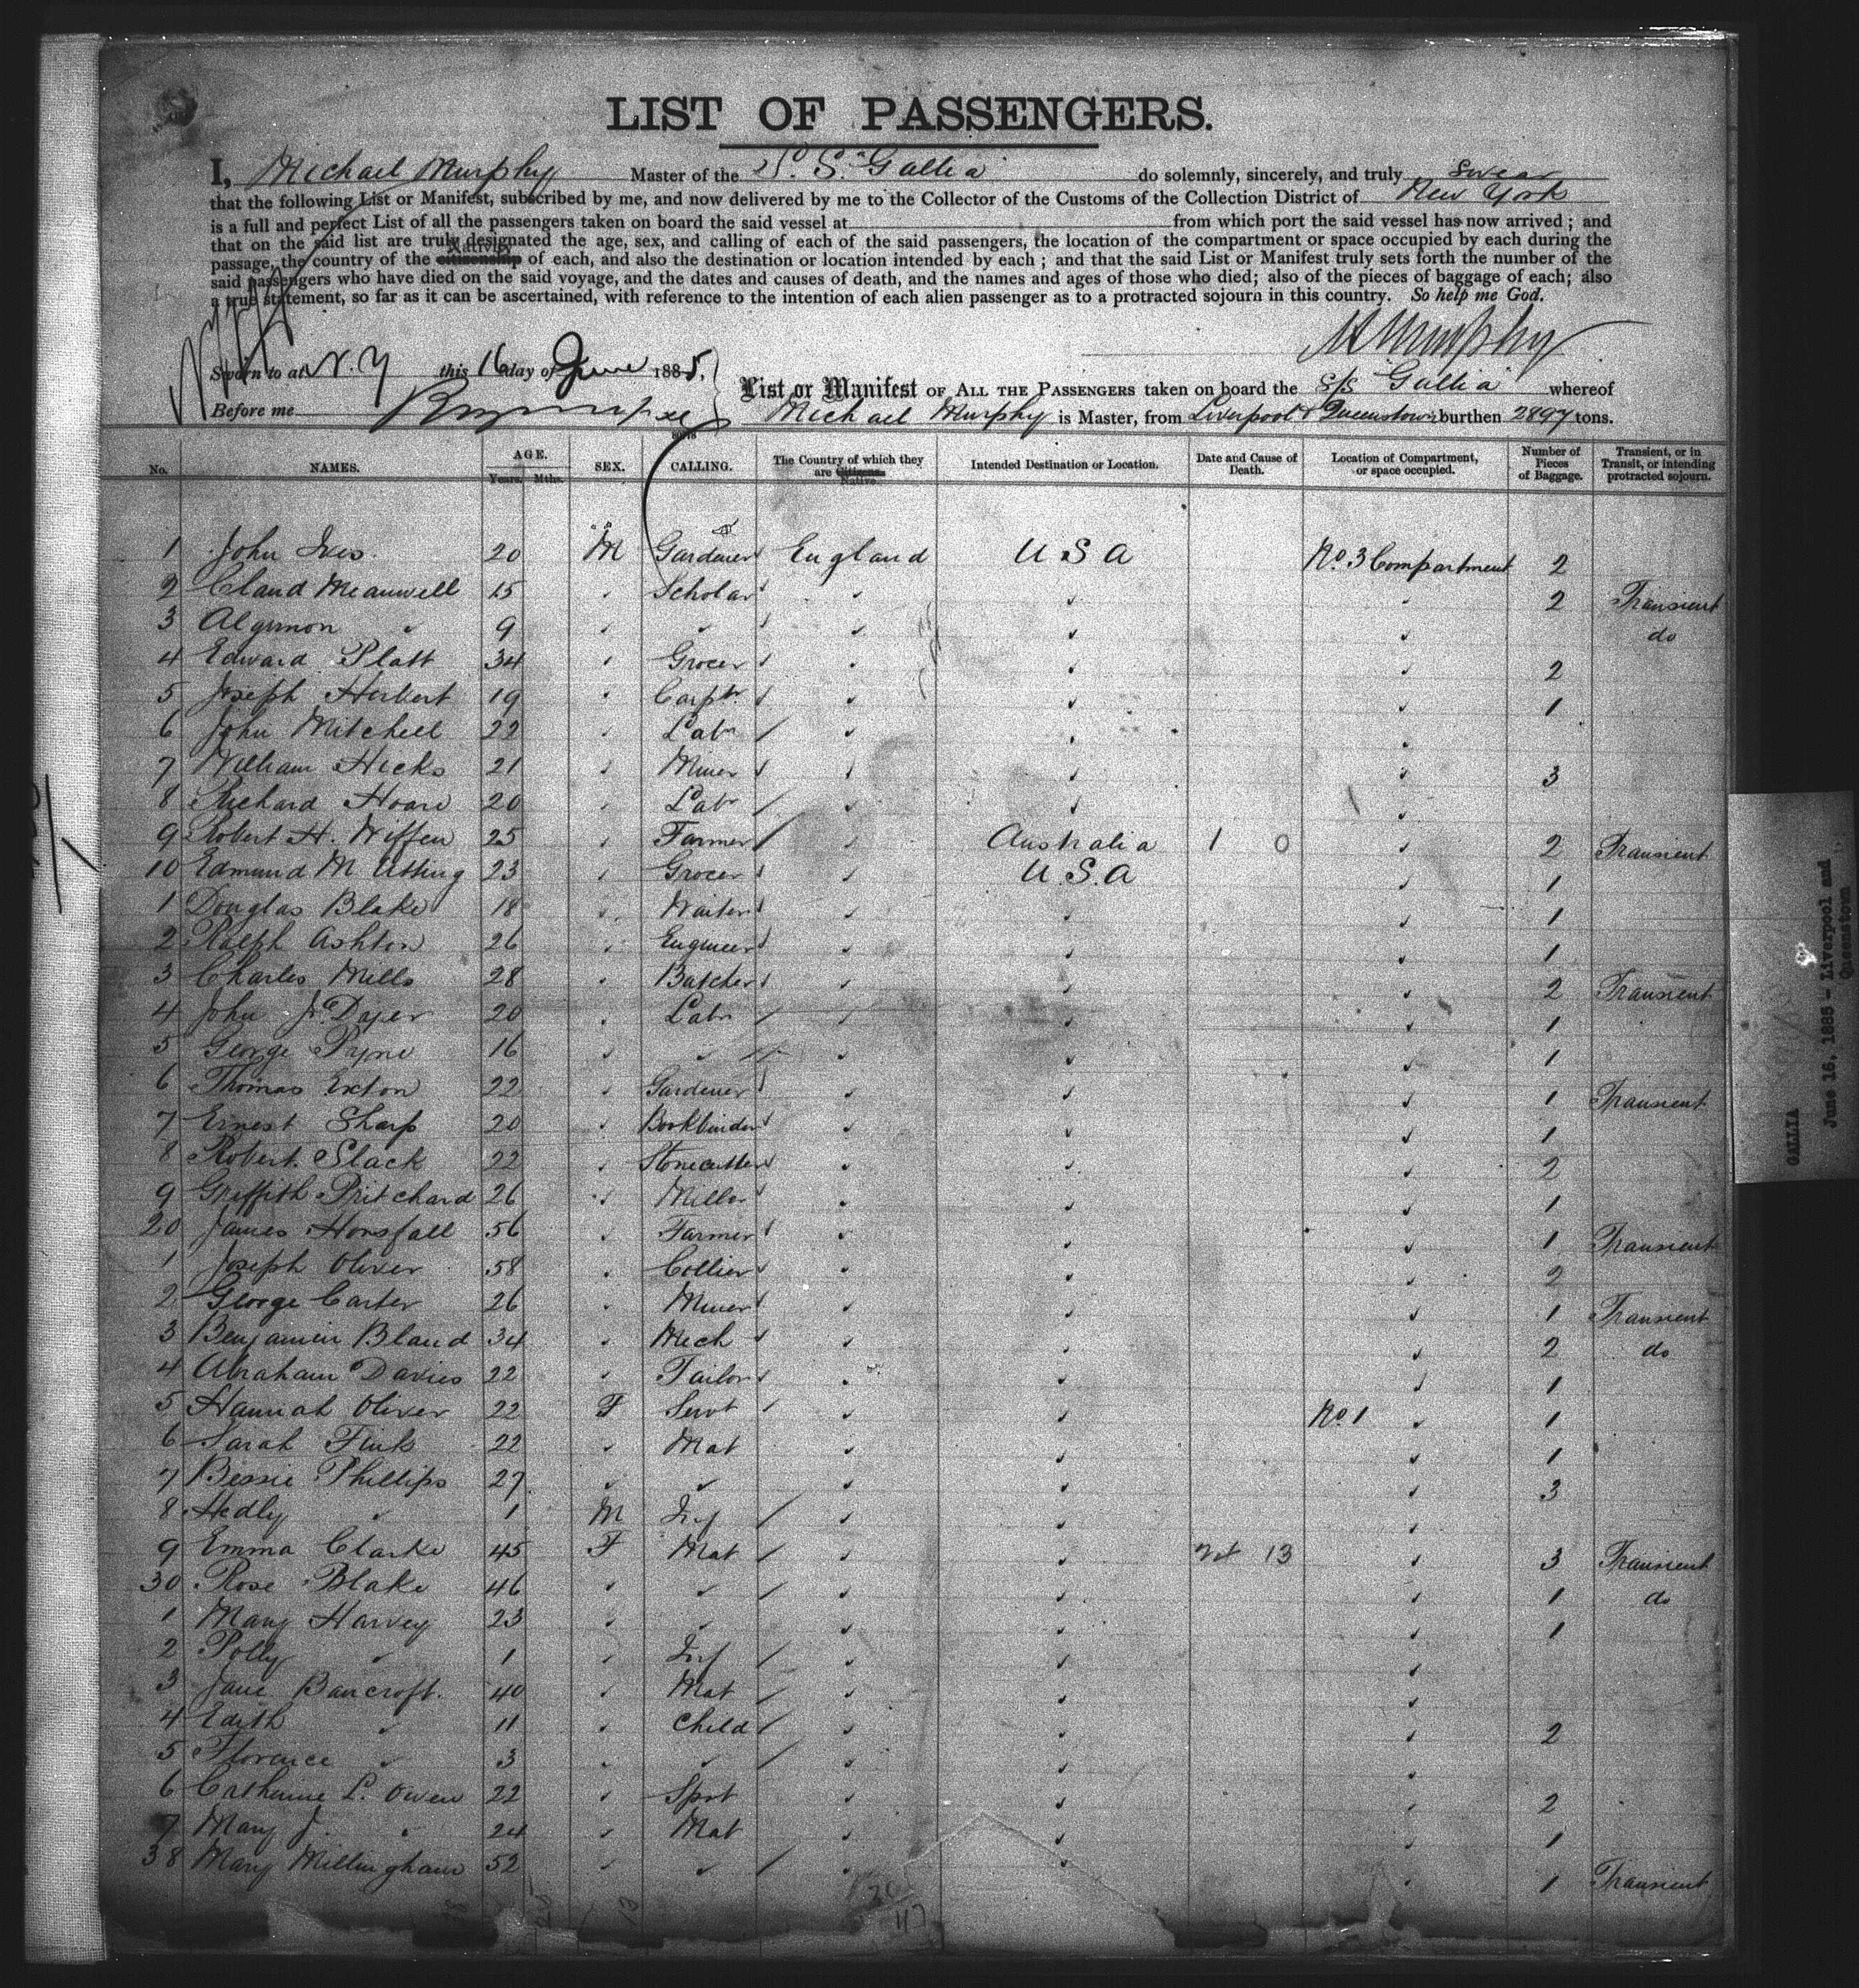 LIST OF PASSENGERS.
I, Michael Murphy Master of the S. S. Gallia do solemnly, sincerely, and truly swear
that the following List or Manifest, subscribed by me, and now delivered by me to the Collector of the Customs of the Collection District of New York
is a full and perfect List of all the passengers taken on board the said vessel at from which port the said vessel has now arrived; and
that on the said list are truly designated the age, sex, and calling of each of the said passengers, the location of the compartment or space occupied by each during the
passage, the country of the citizenship of each, and also the destination or location intended by each; and that the said List or Manifest truly sets forth the number of the
said passengers who have died on the said voyage, and the dates and causes of death, and the names and ages of those who died; also of the pieces of baggage of each; also
a true statement, so far as it can be ascertained, with reference to the intention of each alien passenger as to a protracted sojourn in this country. So help me God.
M Murphy
Sworn to at N. Y this 16 day of June 1885,
List or Manifest OF ALL THE PASSENGERS taken on board the s/s Gallia whereof
Before me
Michael Murphy is Master, from Liverpool & Queenstown burthen 2897 tons.
No. NAMES. AGE. Years. Mths. SEX. CALLING. The Country of which they are Citizens. Native. Intended Destination or Location. Date and Cause of Death. Location of Compartment, or space occupied. Number of Pieces of Baggage. Transient, or in Transit, or intending protracted sojourn.
1 John Ives 20 M Gardener England U S A No. 3 Compartment 2
2 Claud Meanwell 15 " Scholar " " " 2 Transient
3 Algernon " 9 " " " " " do
4 Edward Platt 34 " Grocer " " " 2
5 Joseph Herbert 19 " Carptr. " " " 1
6 John Mitchell 22 " Labr " " "
7 William Hicks 21 " Miner " " " 3
8 Richard Hoare 20 " Labr " " "
9 Robert H. Wiffen 25 " Farmer " Australia 1 0 " 2 Transient
10 Edmund M Utting 23 " Grocer " U. S. A " 1
1 Douglas Blake 18 " Waiter " " " 1
2 Ralph Ashton 26 " Engineer " " " 1
3 Charles Mills 28 " Butcher " " " 2 Transient
4 John Jr. Dyer 20 " Labr " " " 1
5 George Payne 16 " " " " " 1
6 Thomas Exton 22 " Gardener " " " 1 Transient
7 Ernest Sharp 20 " Bookbinder " " " 1
8 Robert Slack 22 " Stonecutter " " " 2
9 Griffith Pritchard 26 " Miller " " " 1
20 James Horsfall 56 " Farmer " " " 1 Transient
1 Joseph Oliver 58 " Collier " " " 2
2 George Carter 26 " Miner " " " 1 Transient
3 Benjamin Bland 34 " Mech " " " 2 do
4 Abraham Davies 22 " Tailor " " " 1
5 Hannah Oliver 22 F Servt " " No. 1 " 1
6 Sarah 22 " Mat " " " 1
7 Bessie Phillips 27 " " " " " 3
8 Hedly " 1 M Inf " " "
9 Emma Clarke 45 F Mat " " 13 " 3 Transient
30 Rose Blake 46 " " " " " 1 do
1 Mary Harvey 23 " " " " " 1
2 Polly " 1 " Inf " " "
3 Jane Bancroft. 40 " Mat " " "
4 Edith " 11 " Child " " " 2
5 Florence " 3 " " " " "
6 Catherine L. Owen 22 " Spst " " " 2
7 Mary J. " 24 " Mat " " " 1
38 Mary Millingham 52 " " " " " 1 Transient
117
GALLIA
June 16, 1885 - Liverpool and
Queenstown